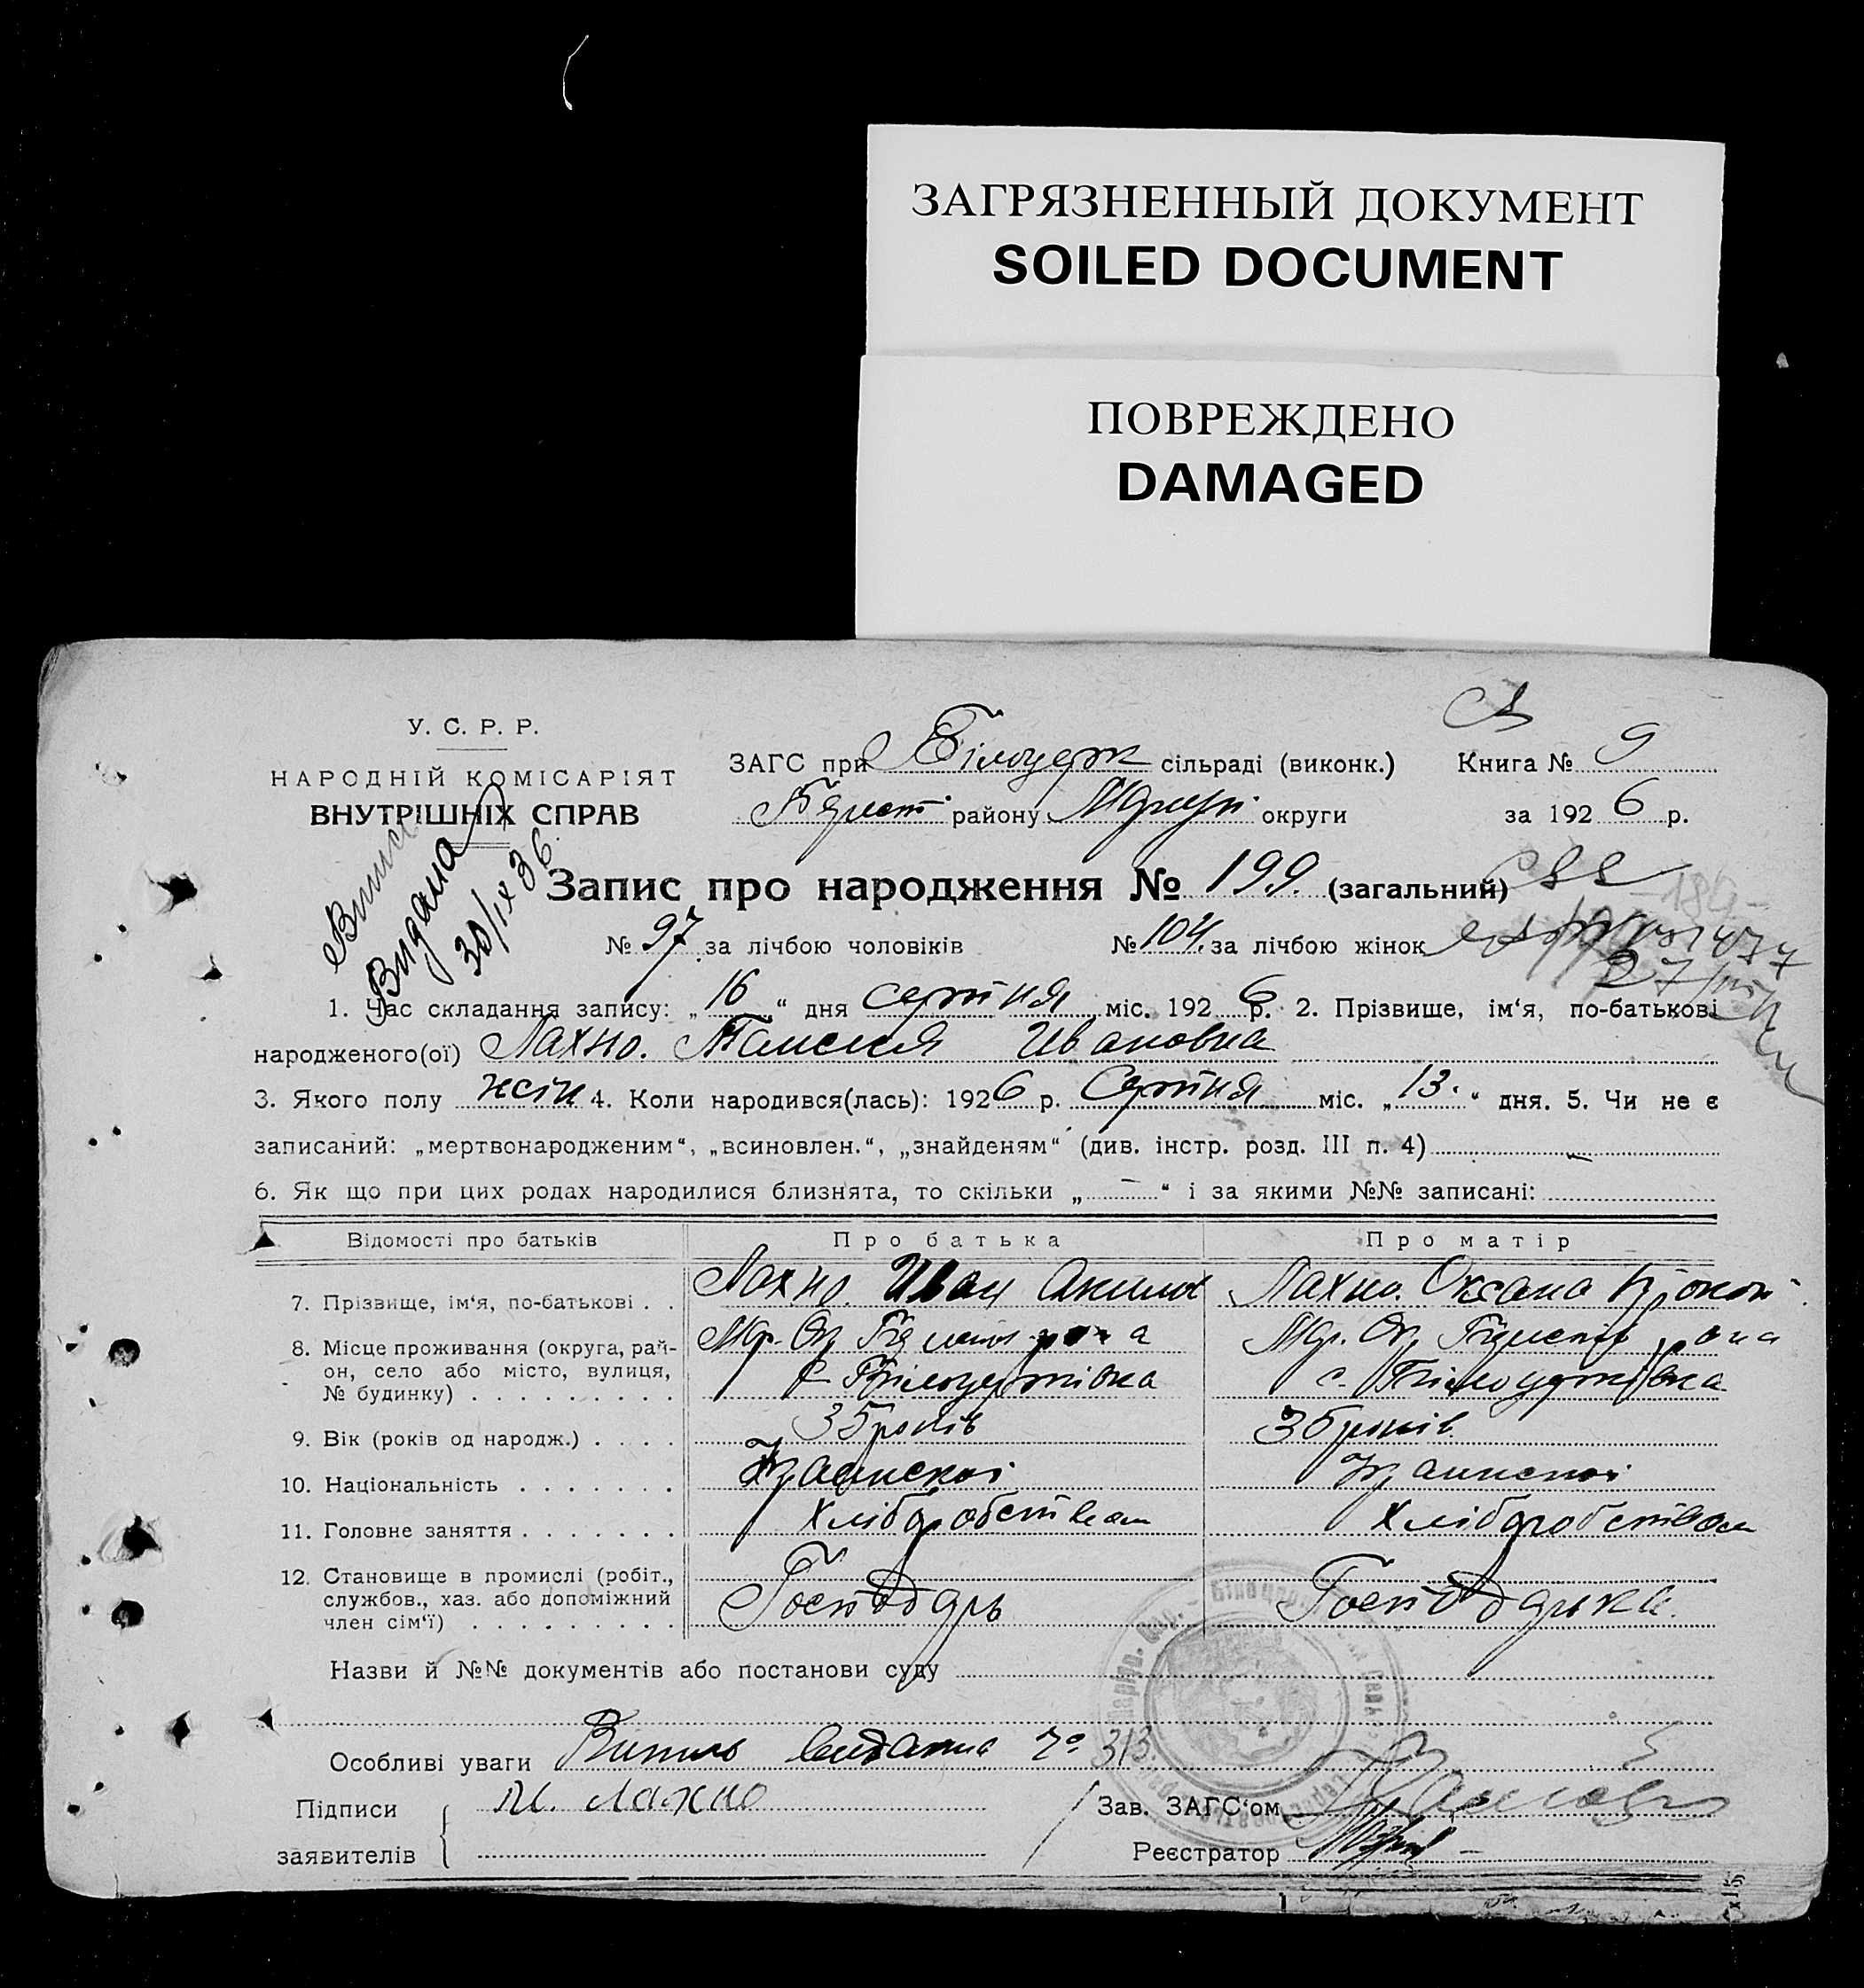 ЗАГРЯЗНЕННЫЙ ДОКУМЕНТ
SOILED DOCUMENT
ПОВРЕЖДЕНО
DAMAGED
У. С. Р. Р.
НАРОДНІЙ КОМІСАРІЯТ
ВНУТРІШНІХ СПРАВ
ЗАГС при Білоцерк сільраді (виконк.) Книга № 9
району округи за 1926 р.
Видана
30/IX 36
Запис про народження № 199. (загальний)
№ 97 за лічбою чоловіків № 104. за лічбою жінок
1. Час складання запису: „16“ дня серпня міс. 1926 р. 2. Прізвище, ім‘я, по-батькові
народженого(ої) Лахно. Таисия Ивановна
3. Якого полу жін 4. Коли народився(лась): 1926 р. Серпня міс. „13.“ дня. 5. Чи не є
записаний: „мертвонародженим“, „всиновлен.“, „знайденям“ (див. інстр. розд. III п. 4) —
6. Як що при цих родах народилися близнята, то скільки „—“ і за якими №№ записані:
Відомості про батьків Про батька Про матір
7. Прізвище, ім‘я, по-батькові . . Лахно. Иван Лахно. Оксана
8. Місце проживання (округа, рай-
он, село або місто, вулиця, с. Білоцерківка с. Білоцерківка
№ будинку) . . . . . . . . .
9. Вік (років од народж.) . . . . 35 років 36 років
10. Національність . . . . . . . Украинскоі Украинскоі
11. Головне заняття . . . . . . . Хліборобством Хліборобством
12. Становище в промислі (робіт.,
службов., хаз. або допоміжний Господарь Господарька.
член сім‘ї) . . . . . . . . .
Назви й №№ документів або постанови суду
Особливі уваги Випись видана № 313.
Підписи И. Лахно Зав. ЗАГС‘ом
заявителів Реєстратор